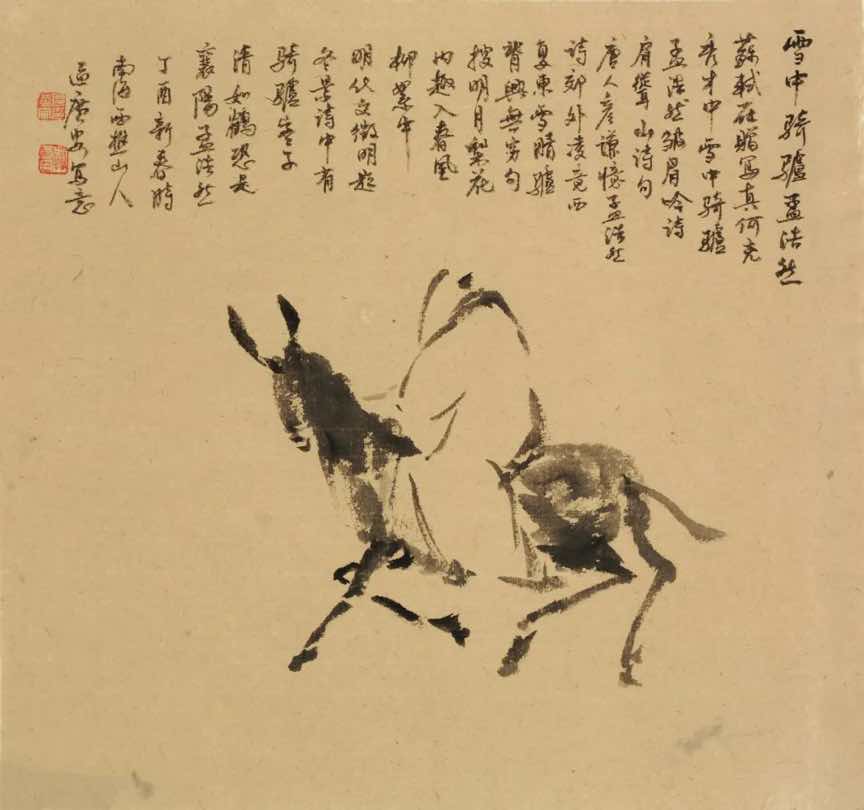 雪中骑驢孟浩然
蘇軾在贈寫真何充
秀才中雪中骑驢
孟浩然皱眉吟诗
肩聳山诗句
唐人彦谦憶孟浩然
诗郊外凌竞西
复東雪晴驢
背興無穷句
搜明月梨花
内趣入春風
柳絮中
明代文徵明題
冬景诗中有
骑驢客子
清如鶴恐是
襄陽孟浩然
丁酉新春時
南海西樵山人
區廣安寫意